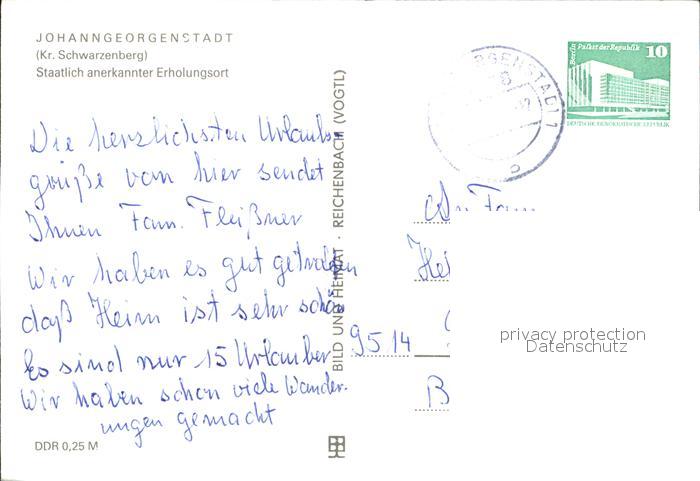 JOHANNGEORGENSTADT
(Kr. Schwarzenberg)
Staatlich anerkannter Erholungsort
Die herzlichsten Urlaubs-
grüße von hier sendet
Ihnen Fam. Fleißner
Wir haben es gut getroffen
daß Heim ist sehr schön
Es sind nur 15 Urlauber
Wir haben schon viele Wander-
ungen gemacht
DDR 0,25 M
BILD UND HEIMAT · REICHENBACH (VOGTL)
Berlin Palast der Republik 10
DEUTSCHE DEMOKRATISCHE REPUBLIK
An Fam
Hei
9514
B
privacy protection
Datenschutz